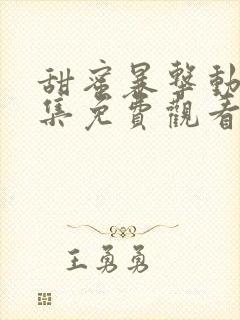 甜蜜暴擊動
集免費觀看
王勇勇